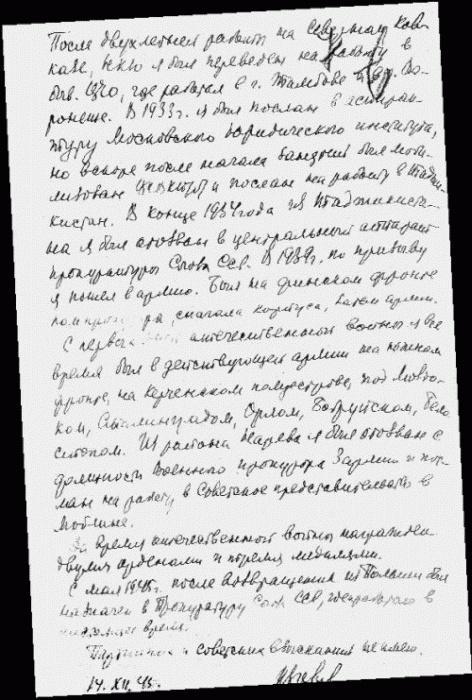 После двухлетней работы на Северном Кав-
казе, я был переведен на работу в
быв. ЦЧО, где работал в г. Тамбове и Во-
ронеже. В 1933 г. я был послан в аспиран-
туру Московского юридического института,
но вскоре после начала занятий был моби-
лизован и послан на работу в Таджи-
кистан. В конце 1934 года из Таджикиста-
на я был отозван в центральный аппарат
прокуратуры Союза ССР. В 1939 г. по призыву
я пошел в армию. Был на финском фронте
сначала корпуса, затем армии.
С первых отечественной войны я все
время был в действующей армии на южном
фронте, на Керченском полуострове, под
Сталинградом, Орлом, Бобруйском, Бело-
стоком. Из района Нарева я был отозван с
должности Военного прокурора 3 армии и пос-
лан на работу в Советское представительство в
Люблине.
За время отечественной войны награжден
двумя орденами и тремя медалями.
С мая 1945 г. после возвращения из Польши был
назначен в Прокуратуру Союза ССР, где работаю в
настоящее время.
Партийных и советских взысканий не имею.
14. XII. 45 г.